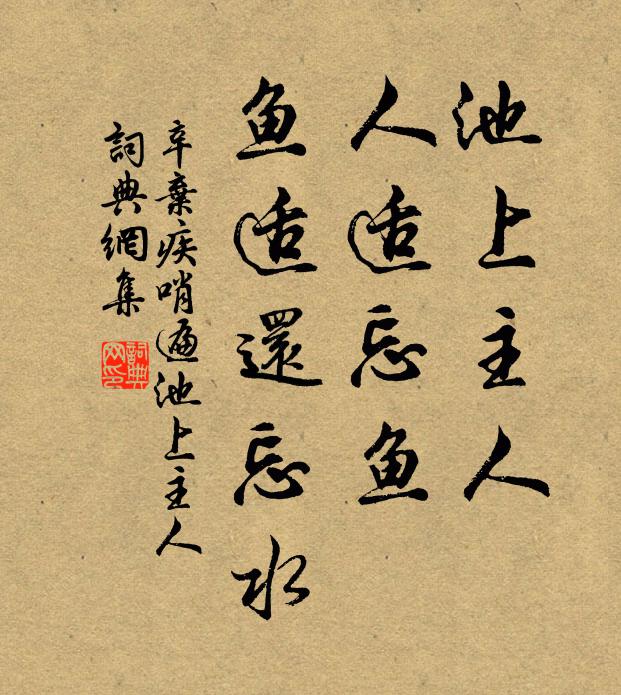 池上主人
人适忘鱼
鱼适還忘水
辛棄疾哨遍池上主人
詞典網集
詞典网印